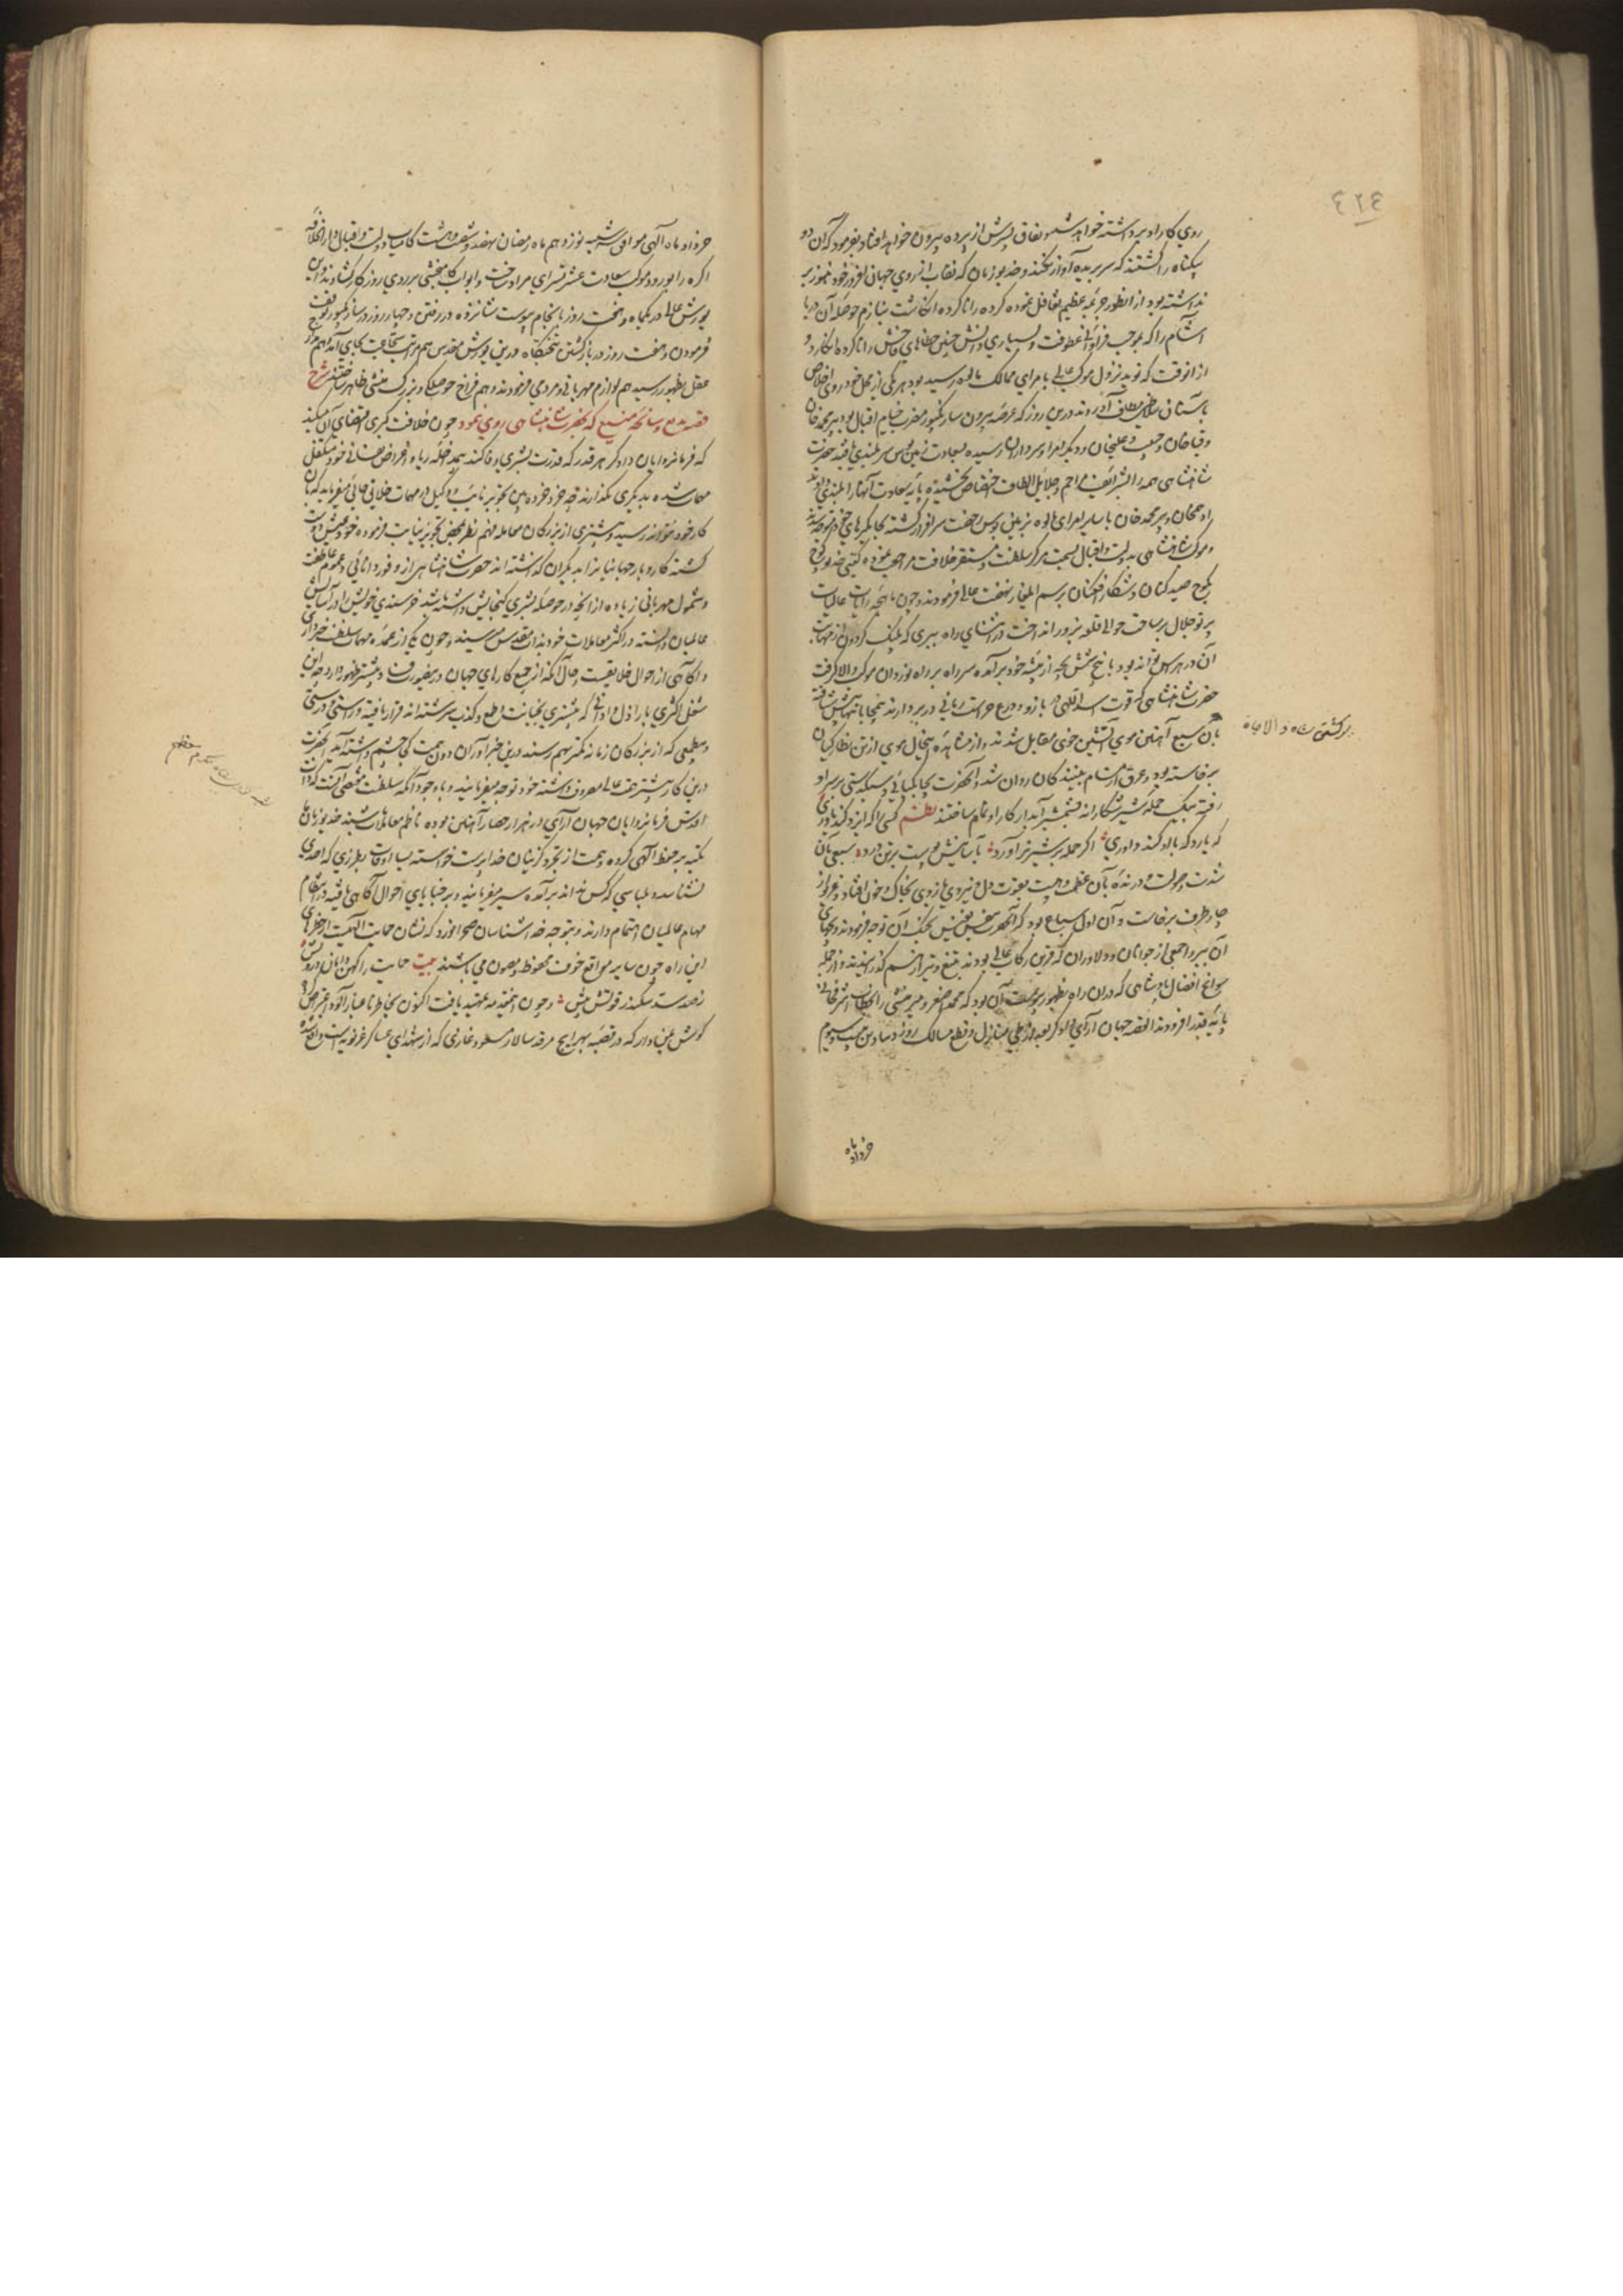 ٤٢٤
روی کار او برداشته خواهد شد و نفاق پسرش از پرده بیرون خواهد افتاد بفرمود که آن دو
بیگناه را کشتند که سر بریده آواز نکند و خدیو زمان که نقاب از روی جهان افروز خود هنوز بر
نداشته بود از انطور جریمه عظیم تغافل نموده کرده را ناکرده انگاشت بنازم حوصله آن دریا
آشام را که بموجب فراوانی عطوفت و بسیاری دانش چنین خطاهای فاحش را ناکرده انگارد و
از انوقت که نوید نزول موکب عالی بامرای ممالک مالوه رسیده بود هر یکی از محل خود روی اخلاص
بآستان سلاطین مطاف آوردند درین روز که عرصه بیرون سارنگپور مضرب خیام اقبال بود پیر محمد خان
و قیا خان و حبیب علیخان و دیگر امرا و سرداران رسیده بسعادت زمین بوس سر بلندی یافتند حضرت
شاهنشاهی همه را بشرائف مراحم و جلائل الطاف اختصاص بخشیده پایه سعادت آنها را بلندی دادند
ادهمخان و پیر محمد خان با سایر امرای مالوه بزمین بوس رخصت سرافراز گشته بجایگیرهای خود متوجه شدند
و موکب شاهنشاهی بدولت و اقبال بسمت مرکز سلطنت و مستقر خلافت مراجعت نموده گیتی خدیو کوچ
بکوچ صید کنان و شکار افکنان برسم ایلغار نهضت عالی فرمودند و چون ماهچه رایات عالیات
پرتو جلال بر ساحت حوالی قلعه نرور انداخت در اثنای راه ببری که پلنگ گردون از مهابت
آن در هراس تواند بود با پنج شش بچه از بیشه خود برآمده سر راه بر راه نوردان موکب والا گرفت
حضرت شاهنشاهی که قوت اسد اللهی در بازو و درع حراست ربانی در بر دارند بیمحابا تنها پیش شتافته
بآن سبع آهنین موی آتشین خوی مقابل شدند و از مشاهده اینحال موی از تن نظارگیان
برخاسته بود و عرق از مسام بینندگان روان شد آنحضرت بچابکپائی و سبکدستی بر سر او
رفته بیک حمله شیر شکارانه بشمشیر آبدار کار او تمام ساختند نظم کسی را که ایزد کند یاوری
که یارد که با او کند داوری اگر حمله بر شیر نر آورد بآسانیش پوست بر تن درد سبعی بآن
شدت و صولت و درنده بآن عظمت و هیبت بقدرت دل و نیروی بازوی بخاک و خون افتاد و غریو از
چار طرف برخاست و آن اول سباع بود که آنحضرت بنفس نفیس بجنگ آن توجه فرمودند و بچهای
آن ببر را جمعی از جوانان و دلاوران که قرین رکاب عالی بودند بتیغ و تیر از هم گذرانیدند و از جمله
سوانح افضال پادشاهی که در ان راه بظهور پیوست آن بود که محمد اصغر میر منشی را بخطاب اشرفخانی
پایه قدر افزودند القصه جهان آرای داد گر بعد از طی منازل و قطع مسالک روز دسادین بیست و سیوم
برگشتن شاه والا جاه
خرداد ماه
خرداد ماه الهی موافق سه شنبه نوزدهم ماه رمضان نهصد و شصت و هشت کامیاب دولت و اقبال دار الخلافه
اگره را بورود موکب سعادت عشرتسرای مراد ساخت و ابواب کامبخشی بر روی روزگار گشادند و این
یورش عالی در یکماه و هفت روز بانجام پیوست شانزده در رفتن و چهار روز در سارنگپور توقف
فرمودن و هفت روز در باز گشتن بتختگاه و درین یورش مقدس هم مراتب شجاعت بجای آمد و هم مدارج
عقل بظهور رسید هم لوازم مهربانی و مردمی فرمودند و هم فراخ حوصلگی و بزرگ منشی ظاهر ساختند شرح
قصه بدیع و سانحه منیع که بحضرت شاهنشاهی روی نمود چون خلافت کبری اقتضای آن میکند
که فرمانروایان داد گر هر قدر که قدرت بشری وفا کند بمداخله ریا و اغراض نفسانی خود متکفل
معاش شده بدیگری نگذارند چه خرد خرده بین تجویز نایب و وکیل در مهمات خلایق جائی میفرماید که بآن
کار خود نتواند رسید و بیشتری از بزرگان معامله فهم نظر بمحض تجویز نیابت افزوده خود عیش دوست
گشته کار و بار جهانبانی را بدیگران گذاشته اند حضرت شاهنشاهی از وفور دانائی و عموم عاطفت
و شمول مهربانی زیاده از آنچه در حوصله بشری گنجایش داشته باشد خرسندی خویش را در آسایش
عالمیان دانسته در اکثر معاملات خود بذات مقدس میرسیدند و چون یکی از عمده مهمات سلطنت خبرداری
و آگاهی از احوال خلایقست و حال آنکه از جمیع کارهای جهان درینصورت فساد بیشتر ظهور دارد چه این
شغل اکثری باراذل و ادانی که بیشتری بخیانت و طمع و کذب سرشته اند قرار یافته و راستی و درستی
و بیطمعی که از بزرگان زمانه کمتر بهم رسد درین خبرآوران دون همت کی چشم داشته آید آنحضرت
درین کار بیشتر همت عالی مصروف داشته خود توجه میفرمایند و با وجود آنکه سلطنت مقتضی آنست که ذات
اقدس فرمانروایان جهان آرای در هزار حصار آهنین بوده ناظم معاملات باشند خدیو زمان
تکیه بر حفظ الهی کرده و همت از تجرد گزینان خداپرست خواسته بسیار اوقات بطرزی که احدی
نشناسد و بلباسی که کس نداند برآمده سیر میفرمایند و بر خبایای احوال آگاهی یافته در انتظام
مهام عالمیان اهتمام دارند و بتوجه خدا شناسان صحرا نورد که نشان حمایت الهیست از خطرهای
این راه چون سایر مواقع خوف محفوظ و مصون می باشند بیت حمایت را کهن دامان درویش
ز صد سد سکندر قوتش بیش و چون این مقدمه تمهید یافت اکنون بخاطر ناغبار آلود اعتراض
گوش هوش دار که در قصبه بهرایچ مرقد سالار مسعود غازی که از شهدای عساکر غزنویه است واقع شده